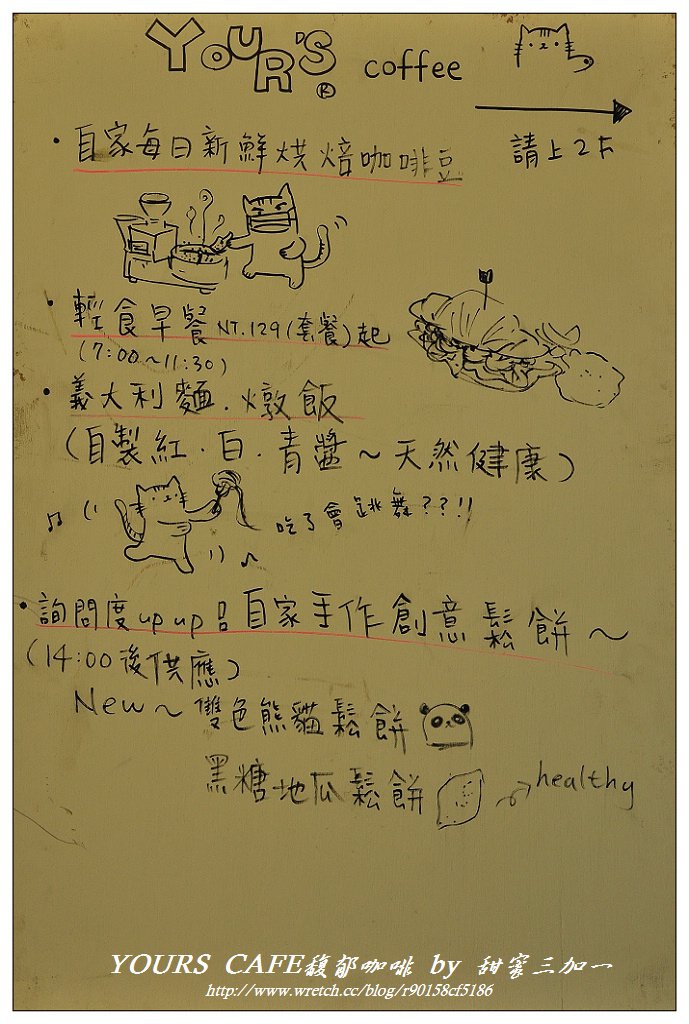 YOUR'S ® coffee
請上2F
• 自家每日新鮮烘焙咖啡豆
• 輕食早餐 NT.129(套餐)起
(7:00~11:30)
• 義大利麵.燉飯
(自製紅.白.青醬~天然健康)
吃了會跳舞??!!
• 詢問度up up 自家手作創意鬆餅~
(14:00後供應)
New~雙色熊貓鬆餅
黑糖地瓜鬆餅 healthy
YOURS CAFE馥郁咖啡 by 甜蜜三加一
http://www.wretch.cc/blog/r90158cf5186